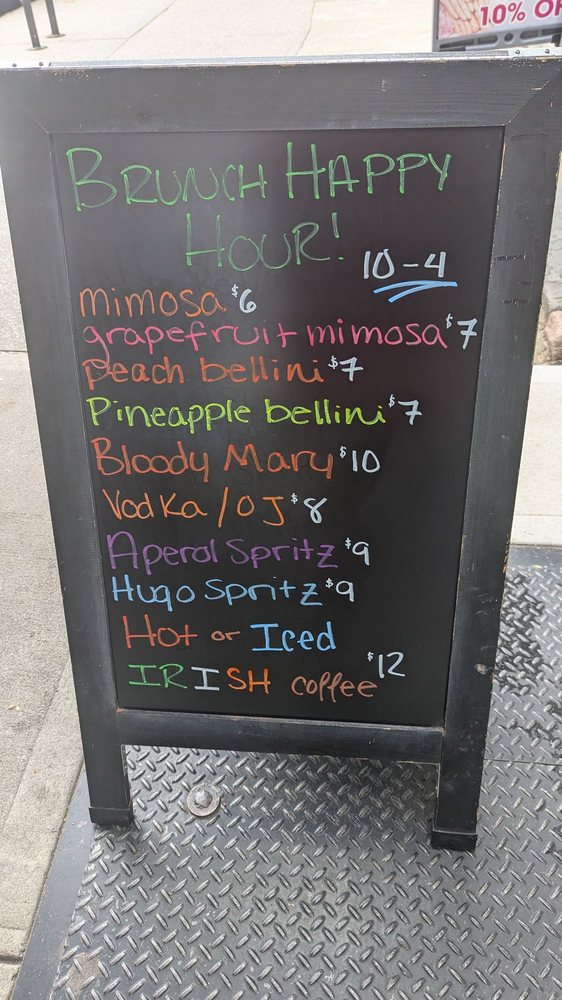 10% OF
BRUNCH HAPPY
HOUR!
10-4
mimosa $6
grapefruit mimosa $7
peach bellini $7
Pineapple bellini $7
Bloody Mary $10
Vodka / OJ $8
Aperol Spritz $9
Hugo Spritz $9
Hot or Iced
IRISH coffee $12